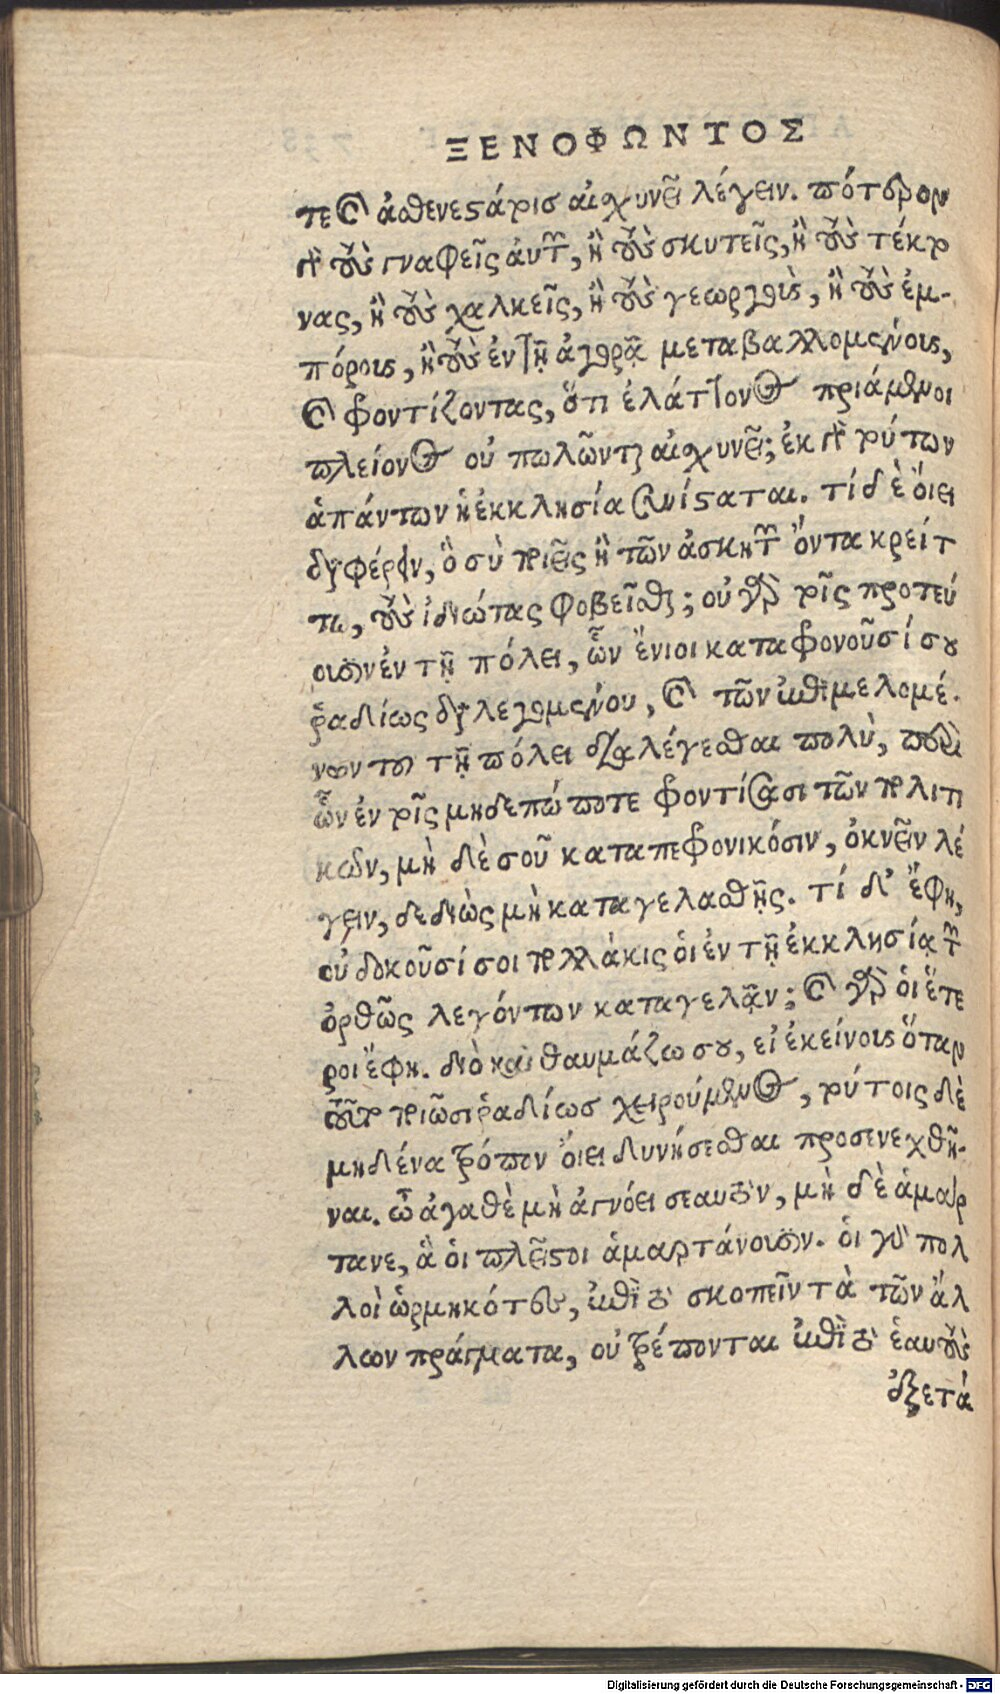 ΞΕΝΟΦΩΝΤΟΣ
τε καὶ ἀσθενεστάρισ αἰσχυνεῖ λέγειν. πότερον
γὰρ τοὺς γναφεῖς αὐτῶν, ἢ τοὺς σκυτεῖς, ἢ τοὺς τέκτο
νας, ἢ τοὺς χαλκεῖς, ἢ τοὺς γεωργοὺς, ἢ τοὺς ἐμ-
πόρους, ἢ τοὺς ἐν τῇ ἀγορᾷ μεταβαλλομένους,
καὶ φροντίζοντας, ὅτι ἐλάττονος πριάμενοι
πλείονος οὐ πωλῶνται αἰσχυνεῖ; ἐκ γὰρ τούτων
ἁπάντων ἡ ἐκκλησία συνίσταται. τί δὲ οἴει
διαφέρειν, ὃ σὺ ποιεῖς ἢ τῶν ἀσκητῶν ὄντα κρείτ
τω, τοὺς ἰδιώτας φοβεῖσθαι; οὐ γὰρ τοῖς πρωτεύ
ουσιν ἐν τῇ πόλει, ὧν ἔνιοι καταφρονοῦσί σου
ῥαδίως διαλεγομένου, καὶ τῶν ἐπιμελομέ-
νων τοῦ τῇ πόλει διαλέγεσθαι πολὺ, περιὼν
ὢν ἐν τοῖς μηδεπώποτε φροντίσασι τῶν πολιτι
κῶν, μὴ δὲ σοῦ καταπεφρονικόσιν, ὀκνεῖν λέ
γειν, δεδιὼς μὴ καταγελασθῇς. τί δ' ἔφη,
οὐ δοκοῦσί σοι πολλάκις οἱ ἐν τῇ ἐκκλησίᾳ τῶν
ὀρθῶς λεγόντων καταγελᾷν; καὶ γὰρ οἱ ἕτε
ροι ἔφη. διὸ καὶ θαυμάζω σου, εἰ ἐκείνους ὅταν
τοῦτο ποιῶσι ῥαδίωσ χειρούμενος, τούτοις δὲ
μηδένα τρόπον οἴει δυνήσεσθαι προσενεχθῆ-
ναι. ὦ ἀγαθὲ μὴ ἀγνόει σεαυτὸν, μὴ δὲ ἁμαρ
τανε, ἃ οἱ πλεῖστοι ἁμαρτάνουσιν. οἱ γὰρ πολ
λοὶ ὡρμηκότες, ἐπὶ τὸ σκοπεῖν τὰ τῶν ἄλ
λων πράγματα, οὐ τρέπονται ἐπὶ τὸ ἑαυτοὺς
ἐξετά
Digitalisierung gefördert durch die Deutsche Forschungsgemeinschaft - DFG